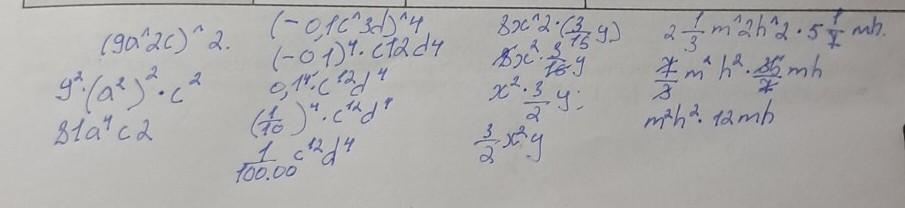 (9a^2c)^2.
9²·(a²)²·c²
81a⁴c2
(-0,1c^3d)^4
(-01)⁴·c12d4
0,1⁴·c¹²d⁴
(1/10)⁴·c¹²d⁴
1/100.00 c¹²d⁴
8x^2·(3/16 y)
8x²·3/16 y
x²·3/2 y;
3/2 x²y
2 1/3 m^2h^2·5 1/7 mh.
7/3 m²h²·36/7 mh
m²h²·12mh